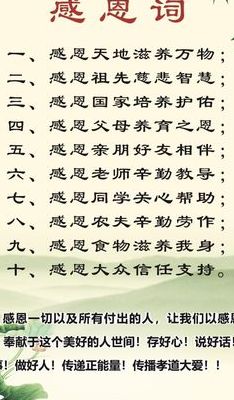 感恩词
一、感恩天地滋养万物；
二、感恩祖先慈悲智慧；
三、感恩国家培养护佑；
四、感恩父母养育之恩；
五、感恩亲朋好友相伴；
六、感恩老师辛勤教导；
七、感恩同学关心帮助；
八、感恩农夫辛勤劳作；
九、感恩食物滋养我身；
十、感恩大众信任支持。
感恩一切以及所有付出的人，让我们以感恩
奉献于这个美好的人世间！存好心！说好话！
！做好人！传递正能量！传播孝道大爱！！